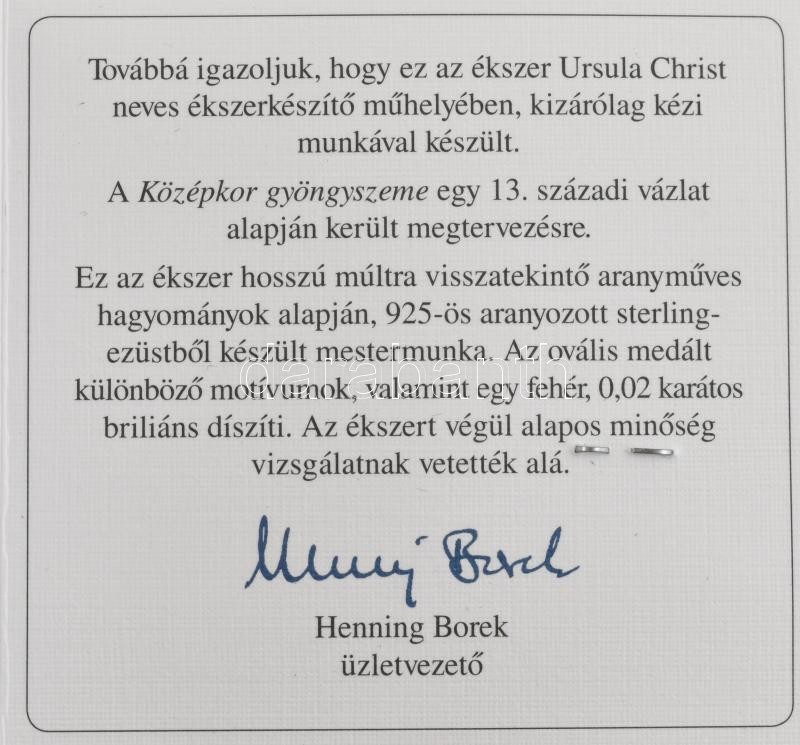 Továbbá igazoljuk, hogy ez az ékszer Ursula Christ
neves ékszerkészítő műhelyében, kizárólag kézi
munkával készült.
A Középkor gyöngyszeme egy 13. századi vázlat
alapján került megtervezésre.
Ez az ékszer hosszú múltra visszatekintő aranyműves
hagyományok alapján, 925-ös aranyozott sterling-
ezüstből készült mestermunka. Az ovális medált
darabanth
különböző motívumok, valamint egy fehér, 0,02 karátos
briliáns díszíti. Az ékszert végül alapos minőség
vizsgálatnak vetették alá.
Henning Borek
Henning Borek
üzletvezető